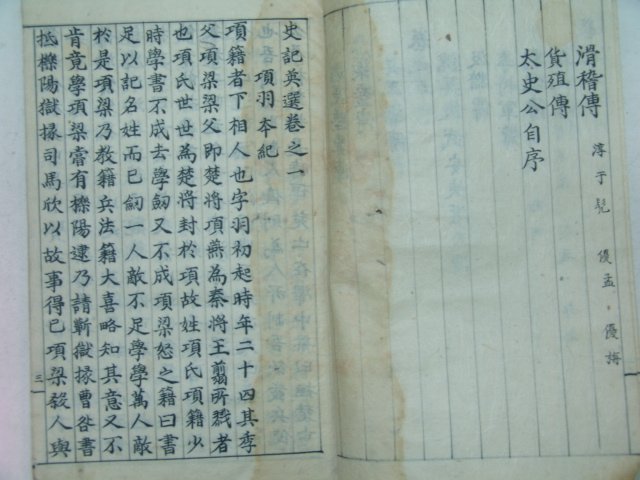 滑稽傳 淳于髡 優孟 優旃
貨殖傳
太史公自序
史記英選卷之一
項羽本紀
項籍者下相人也字羽初起時年二十四其季
父項梁梁父即楚將項燕為秦將王翦所戮者
也項氏世世為楚將封於項故姓項氏項籍少
時學書不成去學劒又不成項梁怒之籍曰書
足以記名姓而已劒一人敵不足學學萬人敵
於是項梁乃教籍兵法籍大喜略知其意又不
肯竟學項梁嘗有櫟陽逮乃請蘄獄掾曹咎書
抵櫟陽獄掾司馬欣以故事得已項梁殺人與
三